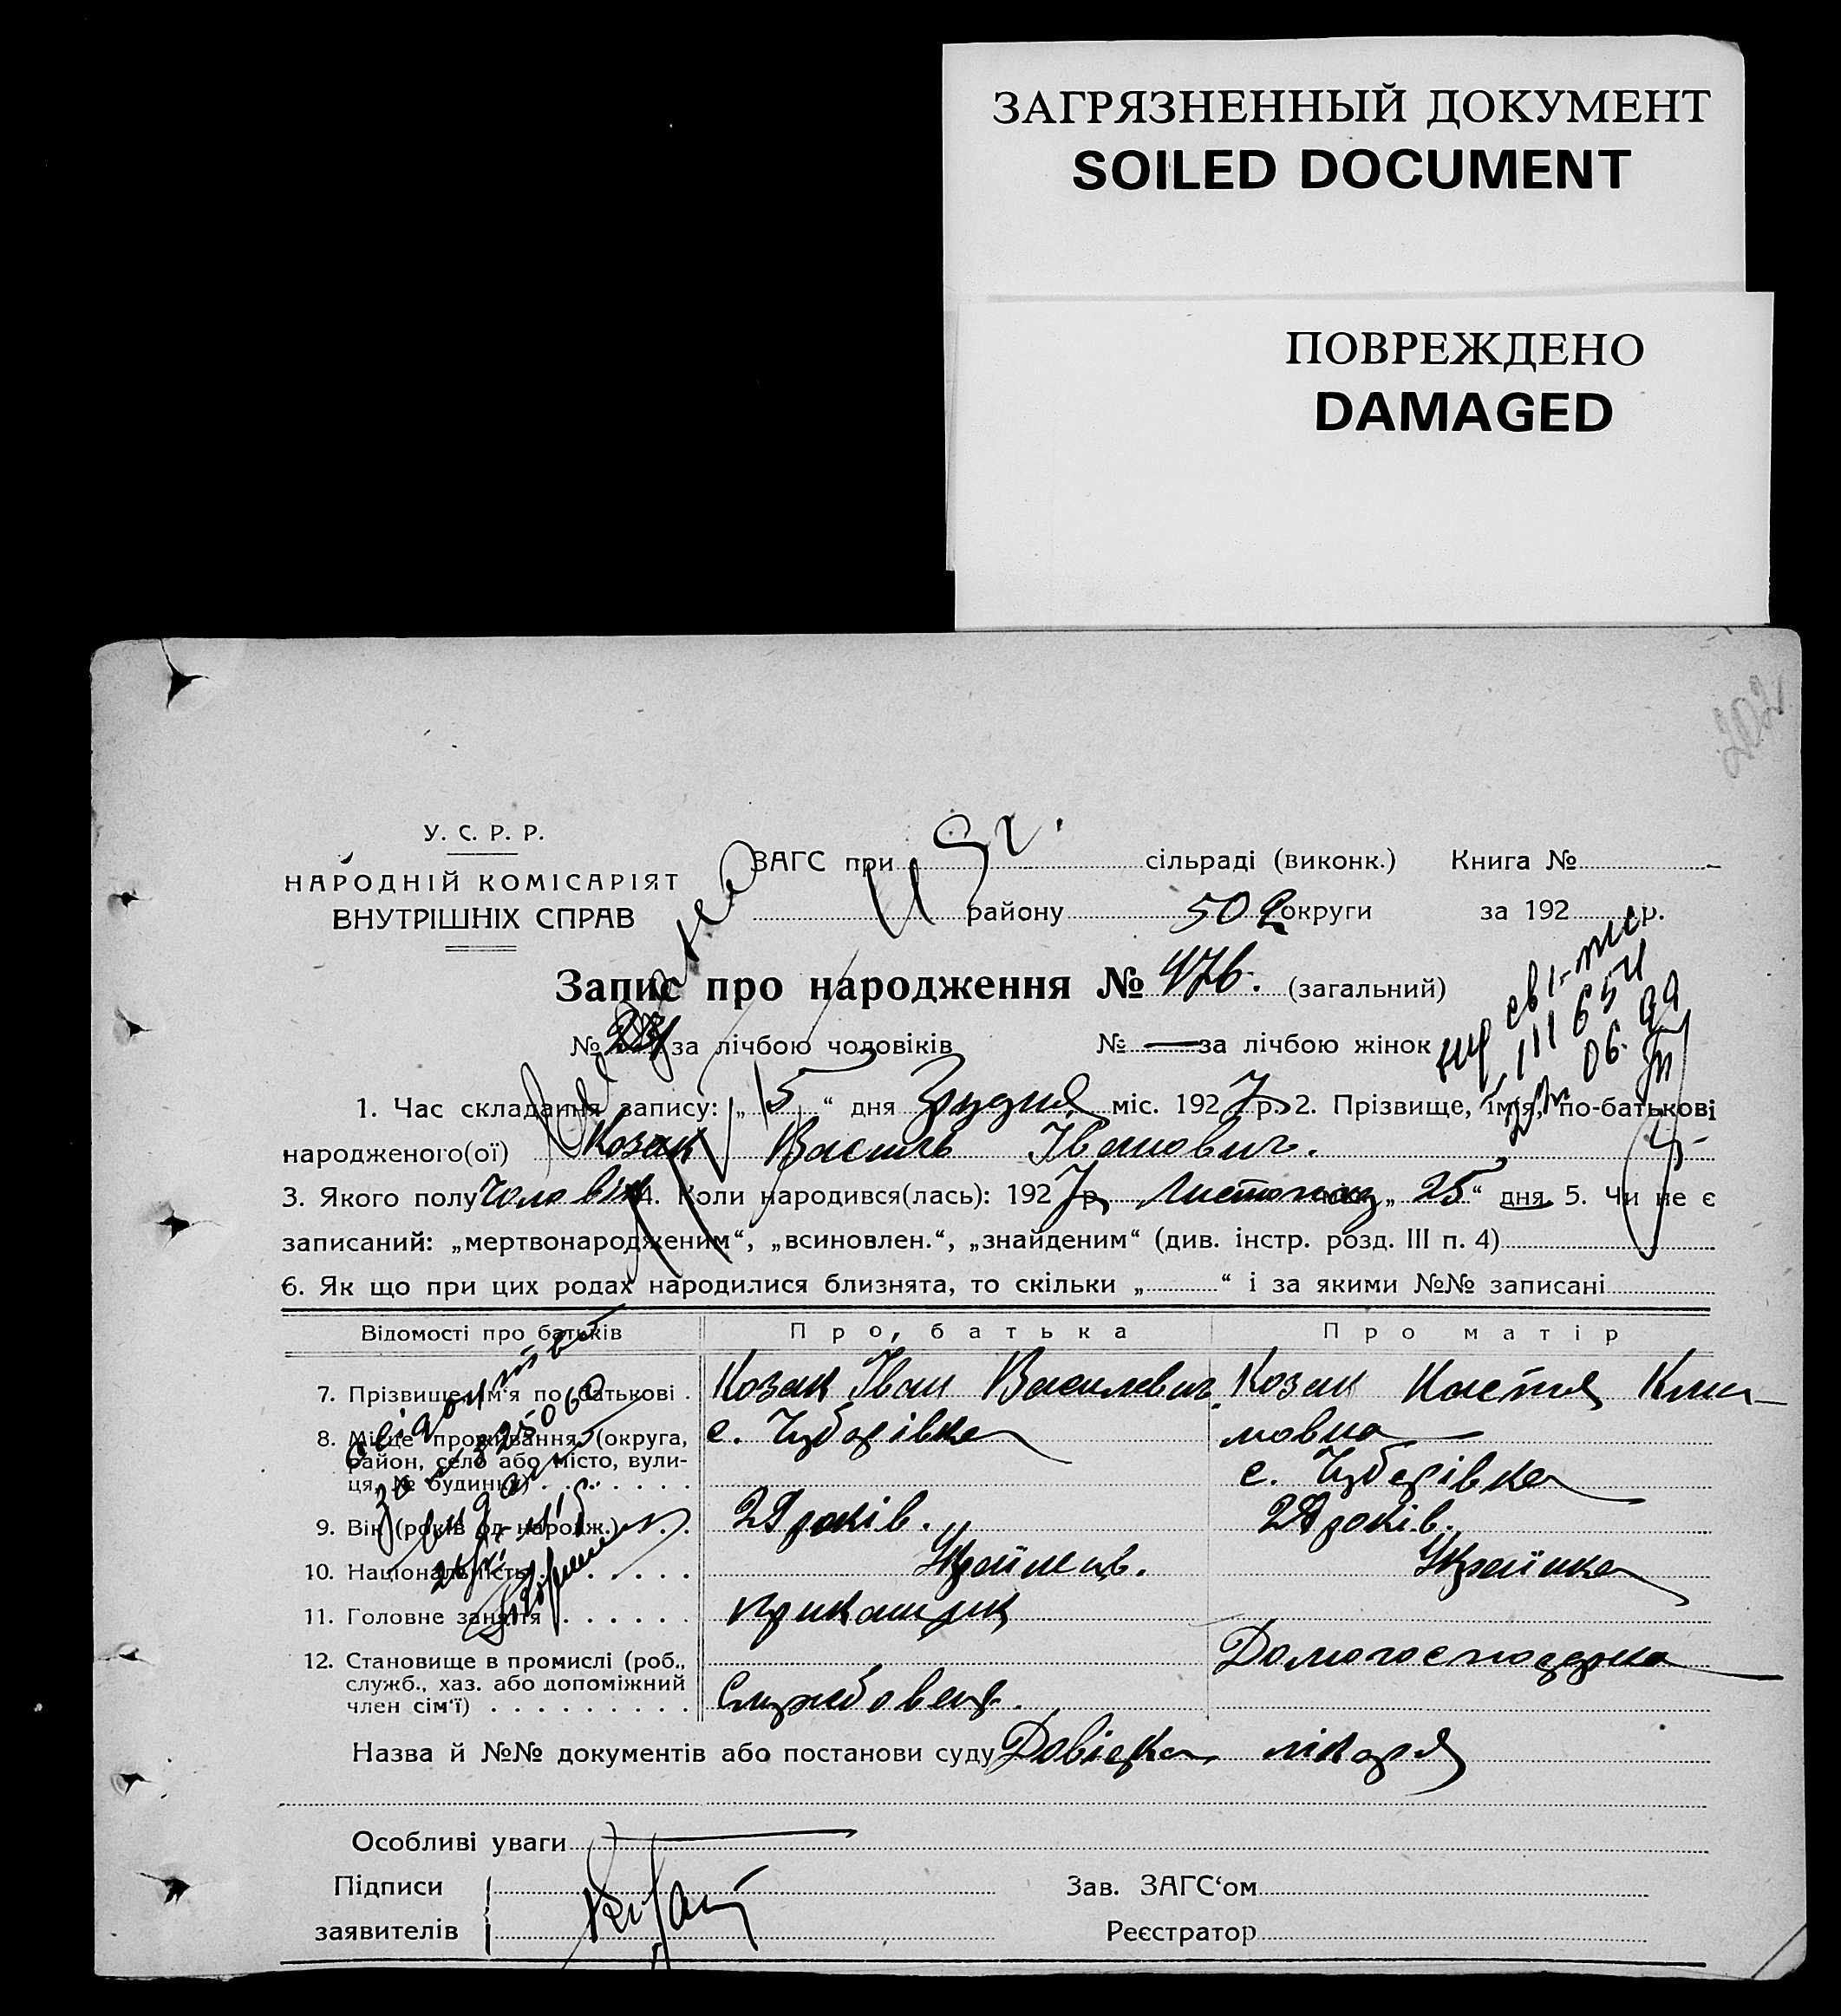 ЗАГРЯЗНЕННЫЙ ДОКУМЕНТ
SOILED DOCUMENT
ПОВРЕЖДЕНО
DAMAGED
202
У. С. Р. Р.
НАРОДНІЙ КОМІСАРІЯТ
ВНУТРІШНІХ СПРАВ
ЗАГС при сільраді (виконк.) Книга №
району 502 округи за 192 р.
Запис про народження № 476. (загальний)
№ за лічбою чоловіків № — за лічбою жінок
1. Час складання запису: „15“ дня Грудня міс. 1927 р. 2. Прізвище, ім'я, по-батькові
народженого(ої) Козак Василь Іванович.
3. Якого полу Чоловік 4. Коли народився(лась): 1927 р. Листопад „25“ дня 5. Чи не є
записаний: „мертвонародженим“, „всиновлен.“, „знайденим“ (див. інстр. розд. III п. 4)
6. Як що при цих родах народилися близнята, то скільки „ “ і за якими №№ записані
Відомості про батьків Про батька Про матір
7. Прізвище, ім'я по батькові Козак Іван Василевич Козак Настя Кли-
мовна
8. Місце проживання (округа, район, село або місто, вули-ця, № будинку) с. Чубарівка с. Чубарівка
9. Вік (років од народж.) років. років.
10. Національність Українець. Українка
11. Головне заняття прикащик
12. Становище в промислі (роб., служб., хаз. або допоміжний член сім'ї) Службовець. Домогосподарка
Назва й №№ документів або постанови суду Довідка лікаря
Особливі уваги
Підписи
заявителів
Зав. ЗАГС'ом
Реєстратор